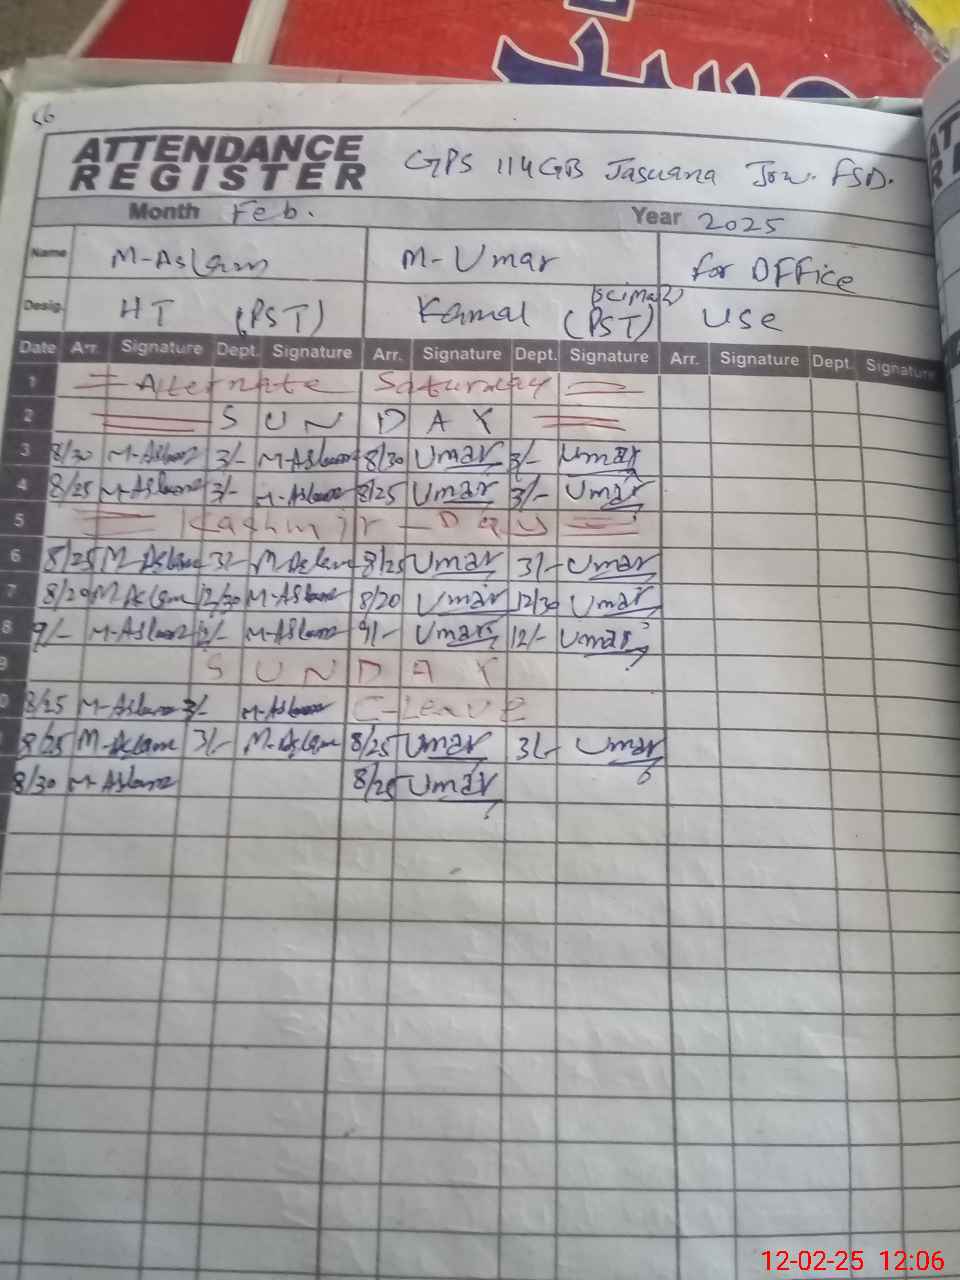 56
ATTENDANCE
REGISTER
GPS 114GB Jasuana Jrw. FSD.
Month Feb. Year 2025
Name M-Aslam M-Umar for OFFice
Desig. HT (PST) Kamal (PST) Use
Date Arr. Signature Dept. Signature Arr. Signature Dept. Signature Arr. Signature Dept. Signature
1 Alternate Saturday
2 S U N D A Y
3 8/30 M-Aslam 3/- M-Aslam 8/30 Umar 3/- Umar
4 8/25 M-Aslam 3/- M-Aslam 8/25 Umar 3/- Umar
5 Kashmir - Day
6 8/25 M-Aslam 3/- M-Aslam 8/25 Umar 3/- Umar
7 8/20 M-Aslam 12/30 M-Aslam 8/20 Umar 12/30 Umar
8 9/- M-Aslam 12/- M-Aslam 9/- Umar 12/- Umar
9 S U N D A Y
0 8/25 M-Aslam 3/- M-Aslam C-Leave
8/25 M-Aslam 3/- M-Aslam 8/25 Umar 3/- Umar
8/30 M-Aslam 8/25 Umar
12-02-25 12:06